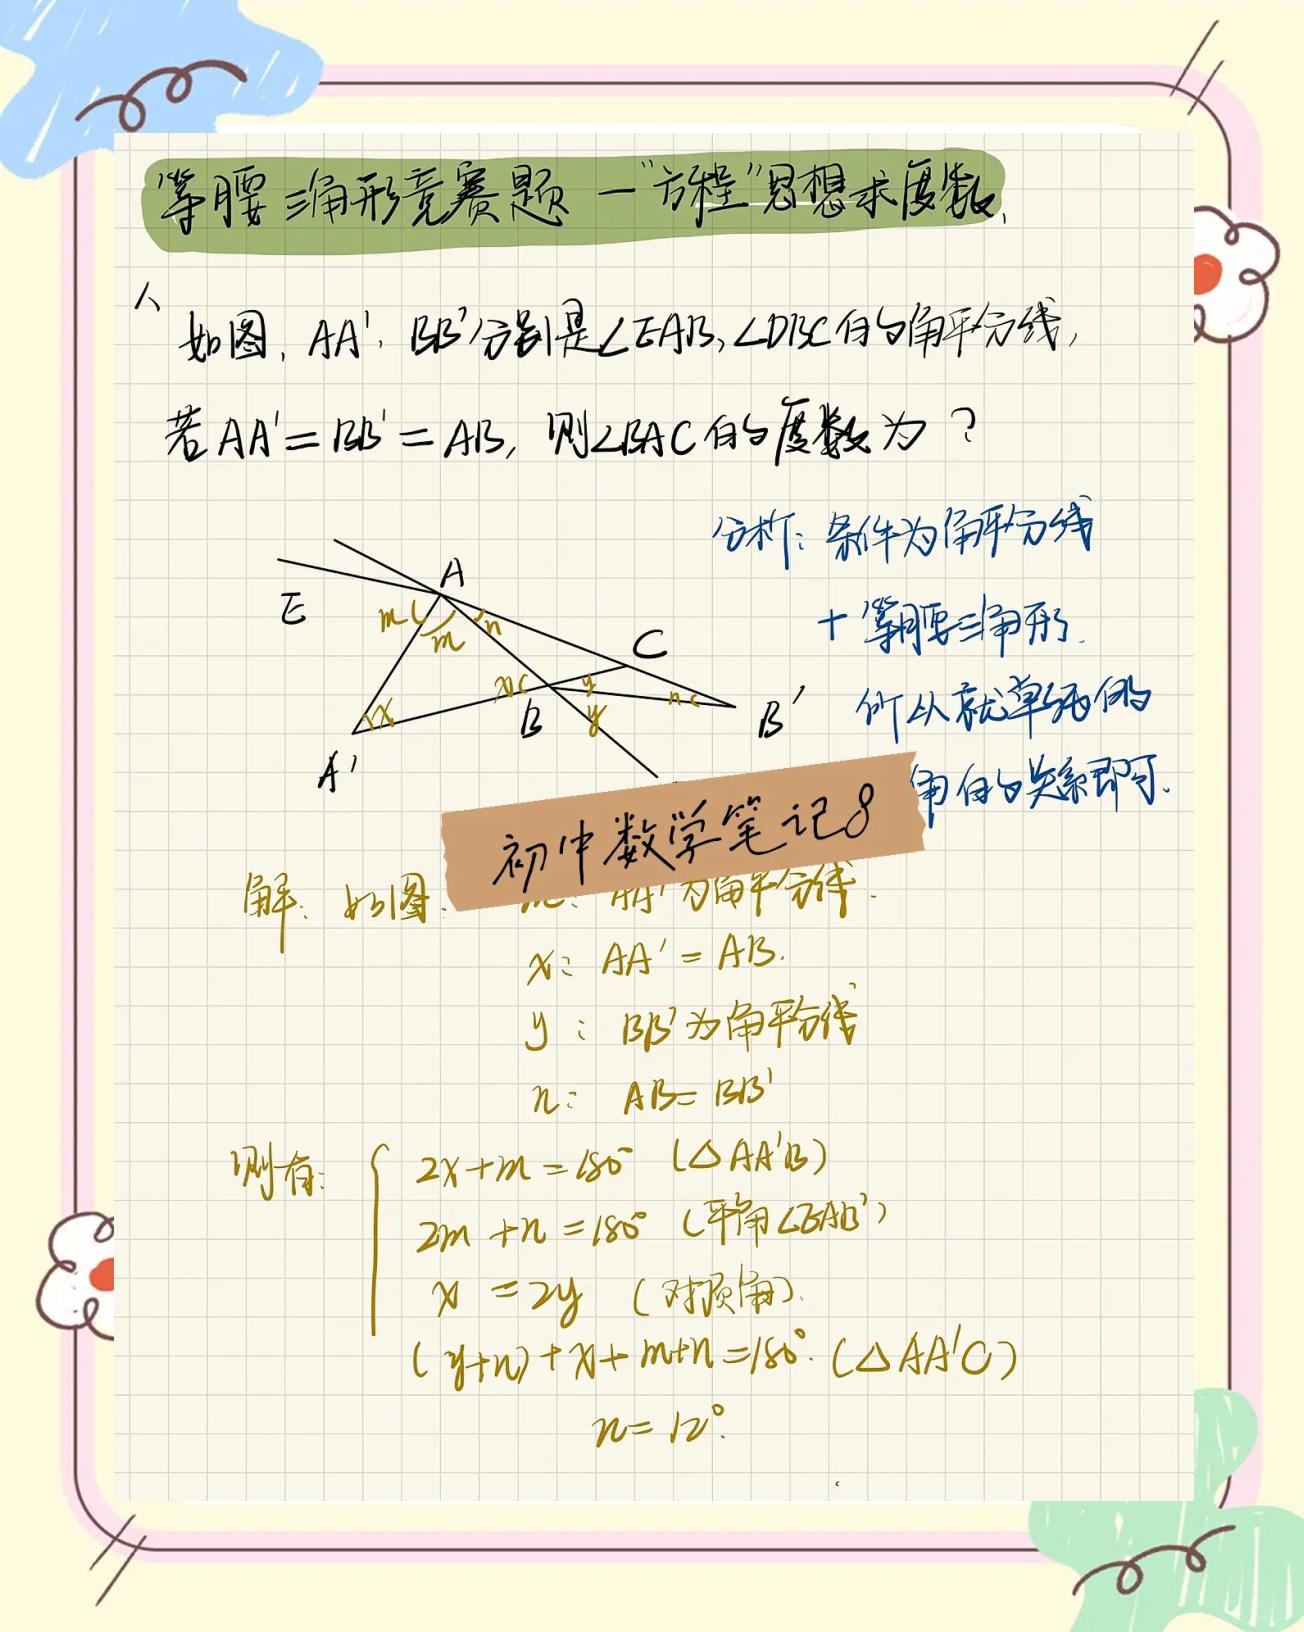 等腰三角形竞赛题—"方程"思想求度数.
1、如图, AA', BB'分别是∠EAB, ∠DBC的角平分线,
若AA'=BB'=AB, 则∠BAC的度数为?
分析: 条件为角平分线
+等腰三角形.
所以就单纯的
角的关系即可.
E
A
m
m
n
C
x
x
B
y
y
n
B'
A'
初中数学笔记8
解: 如图: m: AA'为角平分线.
x: AA'=AB.
y: BB'为角平分线
n: AB=BB'
则有:
2x+m=180° (△AA'B)
2m+n=180° (平角∠EAB')
x=2y (对顶角).
(y+n)+x+m+n=180°. (△AA'C)
n=12°.